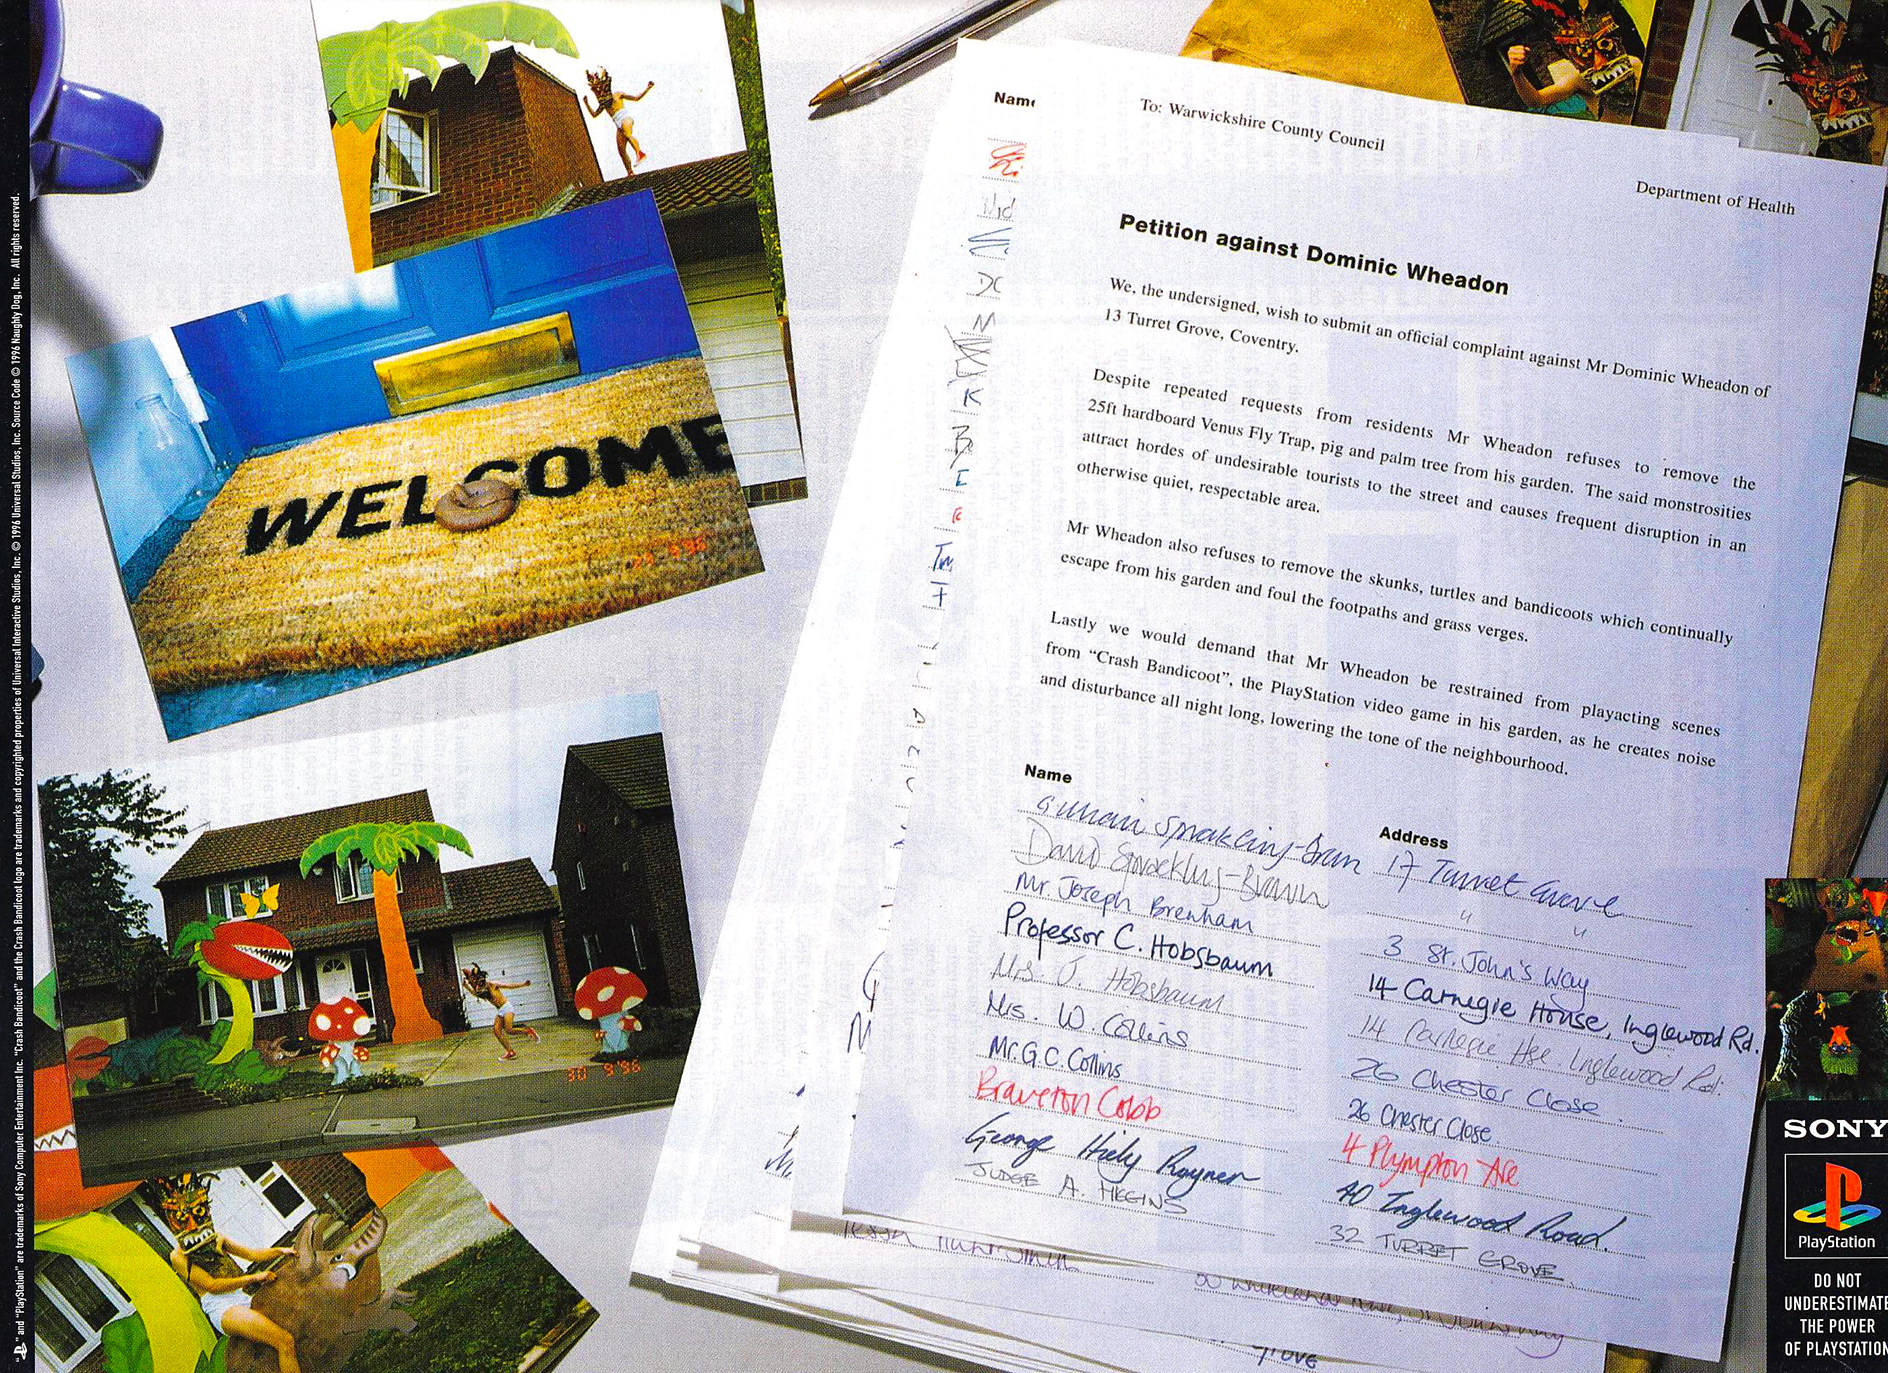 "PS" and "PlayStation" are trademarks of Sony Computer Entertainment Inc. "Crash Bandicoot" and the Crash Bandicoot logo are trademarks and copyrighted properties of Universal Interactive Studios, Inc. © 1996 Universal Studios, Inc. Source Code © 1996 Naughty Dog, Inc. All rights reserved.
WELCOME
30 9'96
Name
To: Warwickshire County Council
Department of Health
Petition against Dominic Wheadon
We, the undersigned, wish to submit an official complaint against Mr Dominic Wheadon of
13 Turret Grove, Coventry.
Despite repeated requests from residents Mr Wheadon refuses to remove the
25ft hardboard Venus Fly Trap, pig and palm tree from his garden. The said monstrosities
attract hordes of undesirable tourists to the street and causes frequent disruption in an
otherwise quiet, respectable area.
Mr Wheadon also refuses to remove the skunks, turtles and bandicoots which continually
escape from his garden and foul the footpaths and grass verges.
Lastly we would demand that Mr Wheadon be restrained from playacting scenes
from "Crash Bandicoot", the PlayStation video game in his garden, as he creates noise
and disturbance all night long, lowering the tone of the neighbourhood.
Name Address
17 Turret Grove
David " "
Mr. Joseph Brenham 3 St. John's Way
Professor C. Hobsbaum 14 Carnegie House, Inglewood Rd.
Mrs. J. Hobsbaum 14 Carnegie Hse. Inglewood Rd.
Mrs. W. Collins 26 Chester Close.
Mr. G. C. Collins 26 Chester Close.
Braverton Cobb 4 Plympton Ave
George Hiely Rayner 40 Inglewood Road.
JUDGE A. HIGGINS 32 TURRET GROVE.
Grove
SONY
PlayStation
DO NOT
UNDERESTIMATE
THE POWER
OF PLAYSTATION